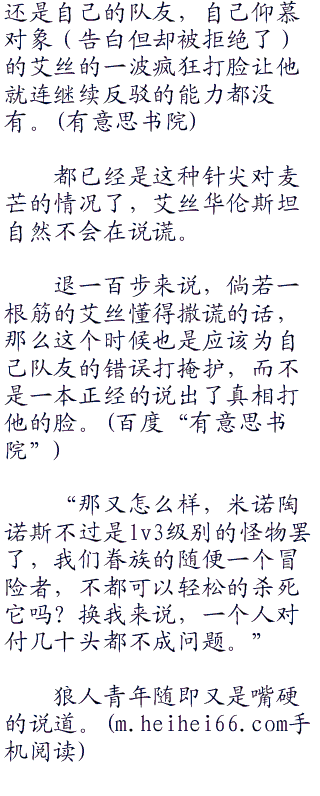 还是自己的队友，自己仰慕
对象（告白但却被拒绝了）
的艾丝的一波疯狂打脸让他
就连继续反驳的能力都没
有。(有意思书院)
都已经是这种针尖对麦
芒的情况了，艾丝华伦斯坦
自然不会在说谎。
退一百步来说，倘若一
根筋的艾丝懂得撒谎的话，
那么这个时候也是应该为自
己队友的错误打掩护，而不
是一本正经的说出了真相打
他的脸。(百度“有意思书
院”)
“那又怎么样，米诺陶
诺斯不过是lv3级别的怪物罢
了，我们眷族的随便一个冒
险者，不都可以轻松的杀死
它吗？换我来说，一个人对
付几十头都不成问题。”
狼人青年随即又是嘴硬
的说道。(m.heihei66.com手
机阅读)